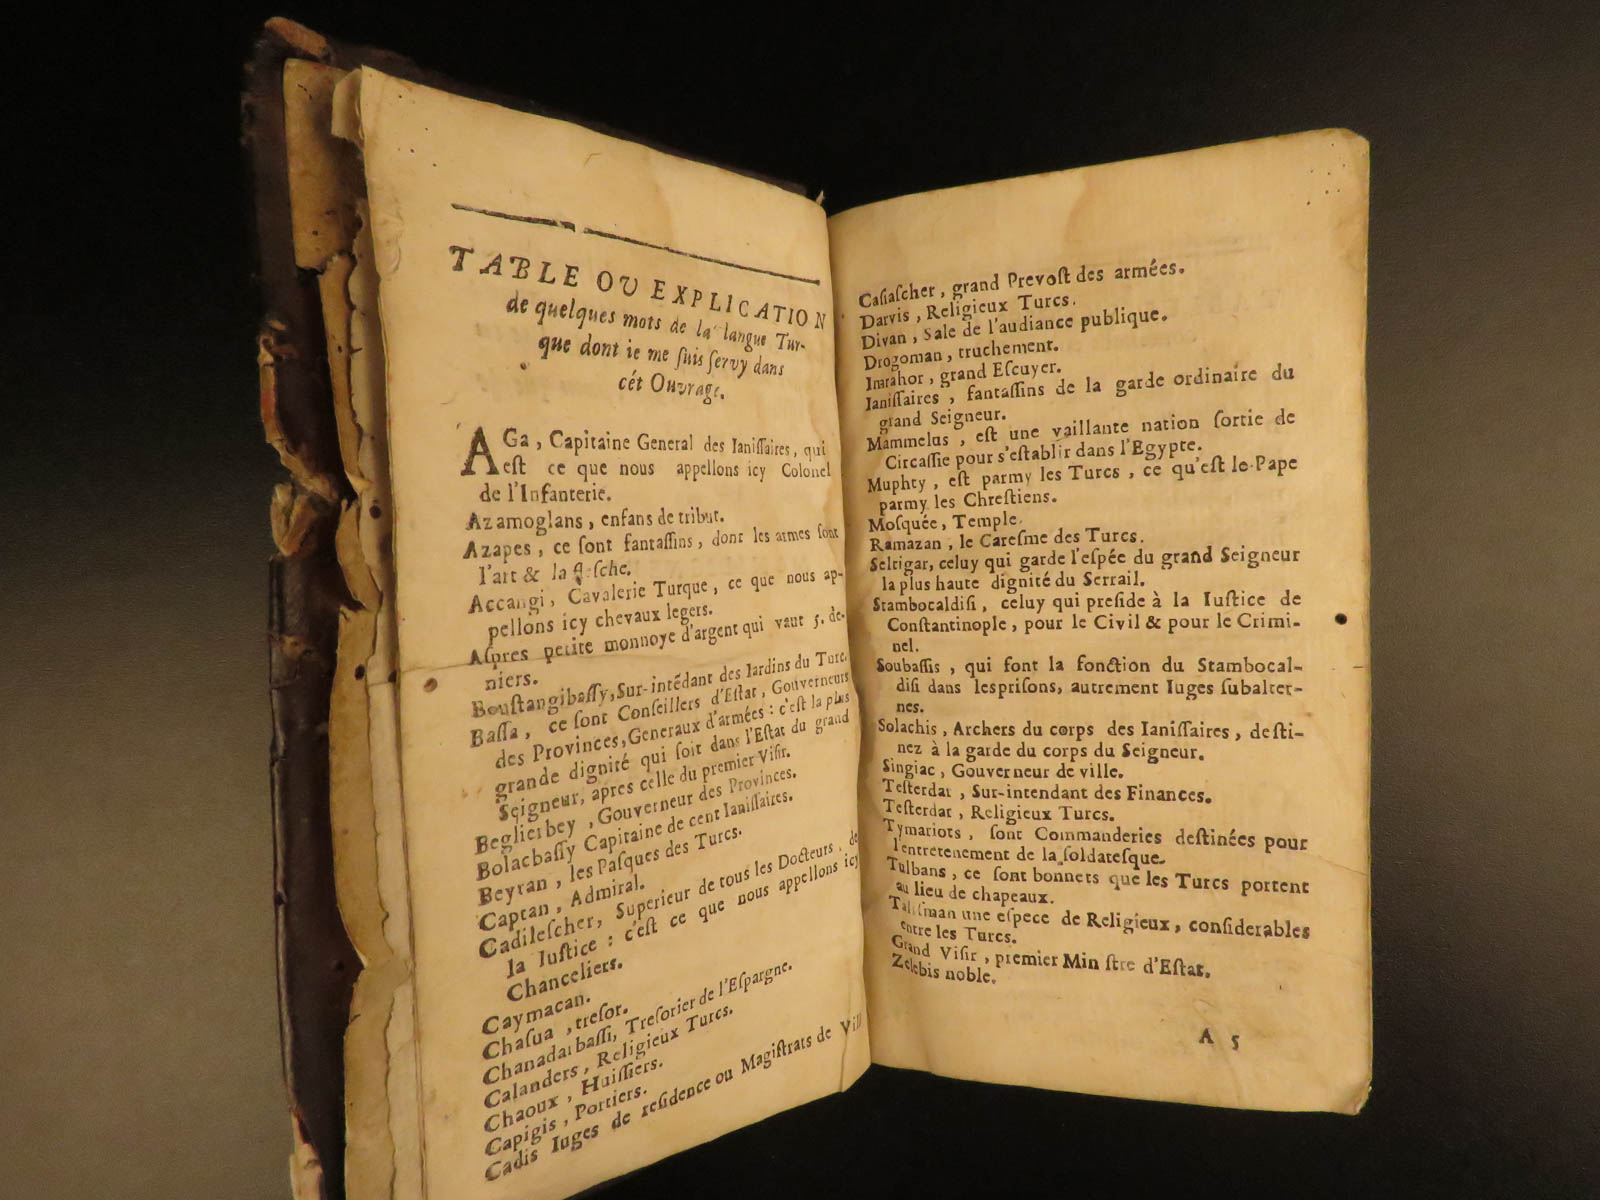 TABLE OV EXPLICATION
de quelques mots de la langue Tur-
que dont ie me ſuis ſervy dans
cét Ouvrage.
AGa, Capitaine General des Ianiſſaires, qui
eſt ce que nous appellons icy Colonel
de l'Infanterie.
Azamoglans, enfans de tribut.
Azapes, ce ſont fantaſſins, dont les armes ſont
l'arc & la fleſche.
Accangi, Cavalerie Turque, ce que nous ap-
pellons icy chevaux legers.
Aſpres petite monnoye d'argent qui vaut 5. de-
niers.
Bouſtangibaſſy, Sur-intẽdant des Iardins du Turc.
Baſſa, ce ſont Conſeillers d'Eſtat, Gouverneurs
des Provinces, Generaux d'armées : c'eſt la plus
grande dignité qui ſoit dans l'Eſtat du grand
Seigneur, apres celle du premier Viſir.
Beglierbey, Gouverneur des Provinces.
Bolacbaſſy Capitaine de cent Ianiſſaires.
Beyran, les Paſques des Turcs.
Captan, Admiral.
Cadileſcher, Superieur de tous les Docteurs, de
la Iuſtice : c'eſt ce que nous appellons icy
Chanceliers.
Caymacan.
Chaſua, treſor.
Chanadarbaſſi, Treſorier de l'Eſpargne.
Calanders, Religieux Turcs.
Chaoux, Huiſſiers.
Capigis, Portiers.
Cadis Iuges de reſidence ou Magiſtrats de Vill
Caſiaſcher, grand Prevoſt des armées.
Darvis, Religieux Turcs.
Divan, Sale de l'audiance publique.
Drogoman, truchement.
Imrahor, grand Eſcuyer.
Ianiſſaires, fantaſſins de la garde ordinaire du
grand Seigneur.
Mammelus, eſt une vaillante nation ſortie de
Circaſſie pour s'eſtablir dans l'Egypte.
Muphty, eſt parmy les Turcs, ce qu'eſt le Pape
parmy les Chreſtiens.
Moſquée, Temple.
Ramazan, le Careſme des Turcs.
Selrigar, celuy qui garde l'eſpée du grand Seigneur
la plus haute dignité du Serrail.
Stambocaldiſi, celuy qui preſide à la Iuſtice de
Conſtantinople, pour le Civil & pour le Crimi-
nel.
Soubaſſis, qui font la fonction du Stambocal-
diſi dans lesprisons, autrement Iuges ſubalter-
nes.
Solachis, Archers du corps des Ianiſſaires, deſti-
nez à la garde du corps du Seigneur.
Singiac, Gouverneur de ville.
Teſterdar, Sur-intendant des Finances.
Teſterdar, Religieux Turcs.
Tymariots, ſont Commanderies deſtinées pour
l'entretenement de la ſoldateſque.
Tulbans, ce ſont bonnets que les Turcs portent
au lieu de chapeaux.
Taliſman une eſpece de Religieux, conſiderables
entre les Turcs.
Grand Viſir, premier Min ſtre d'Eſtat.
Zelebis noble.
A 5